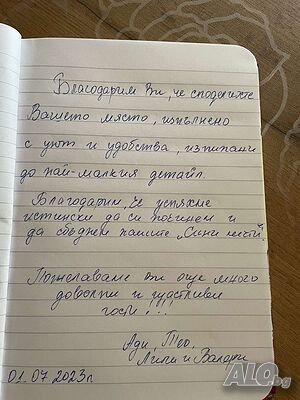 Благодарим Ви, че споделихте
Вашето място, изпълнено
с уют и удобства, изпипани
до най-малкия детайл.
Благодарим, че успяхме
истински да си починем и
да сбъднем нашите „Сини мечти“.
Пожелаваме Ви още много
доволни и щастливи
гости!!!
Ади, Тео,
Лили и Валери
01.07.2023г.
ALO.bg